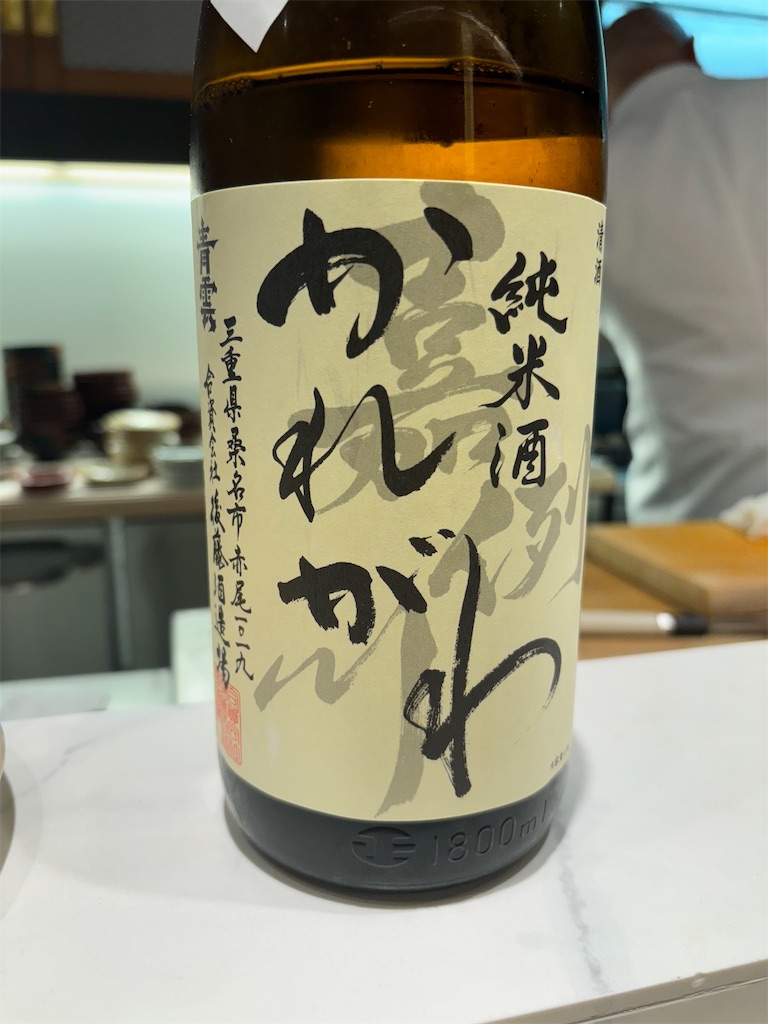 清酒
純米酒
かれがわ
嘉例川
三重県桑名市赤尾一〇一九
合資会社 後藤酒造場
青雲
1800ml